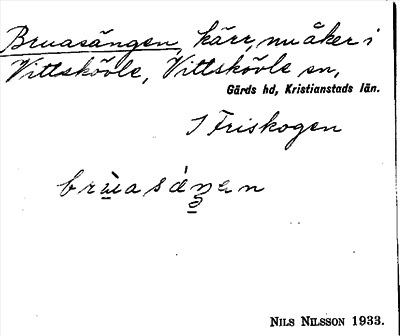 Bruasängen, kärr, nu åker i
Vittskövle, Vittskövle sn,
Gärds hd, Kristianstads län.
I Friskogen
brùasáŋen
NILS NILSSON 1933.